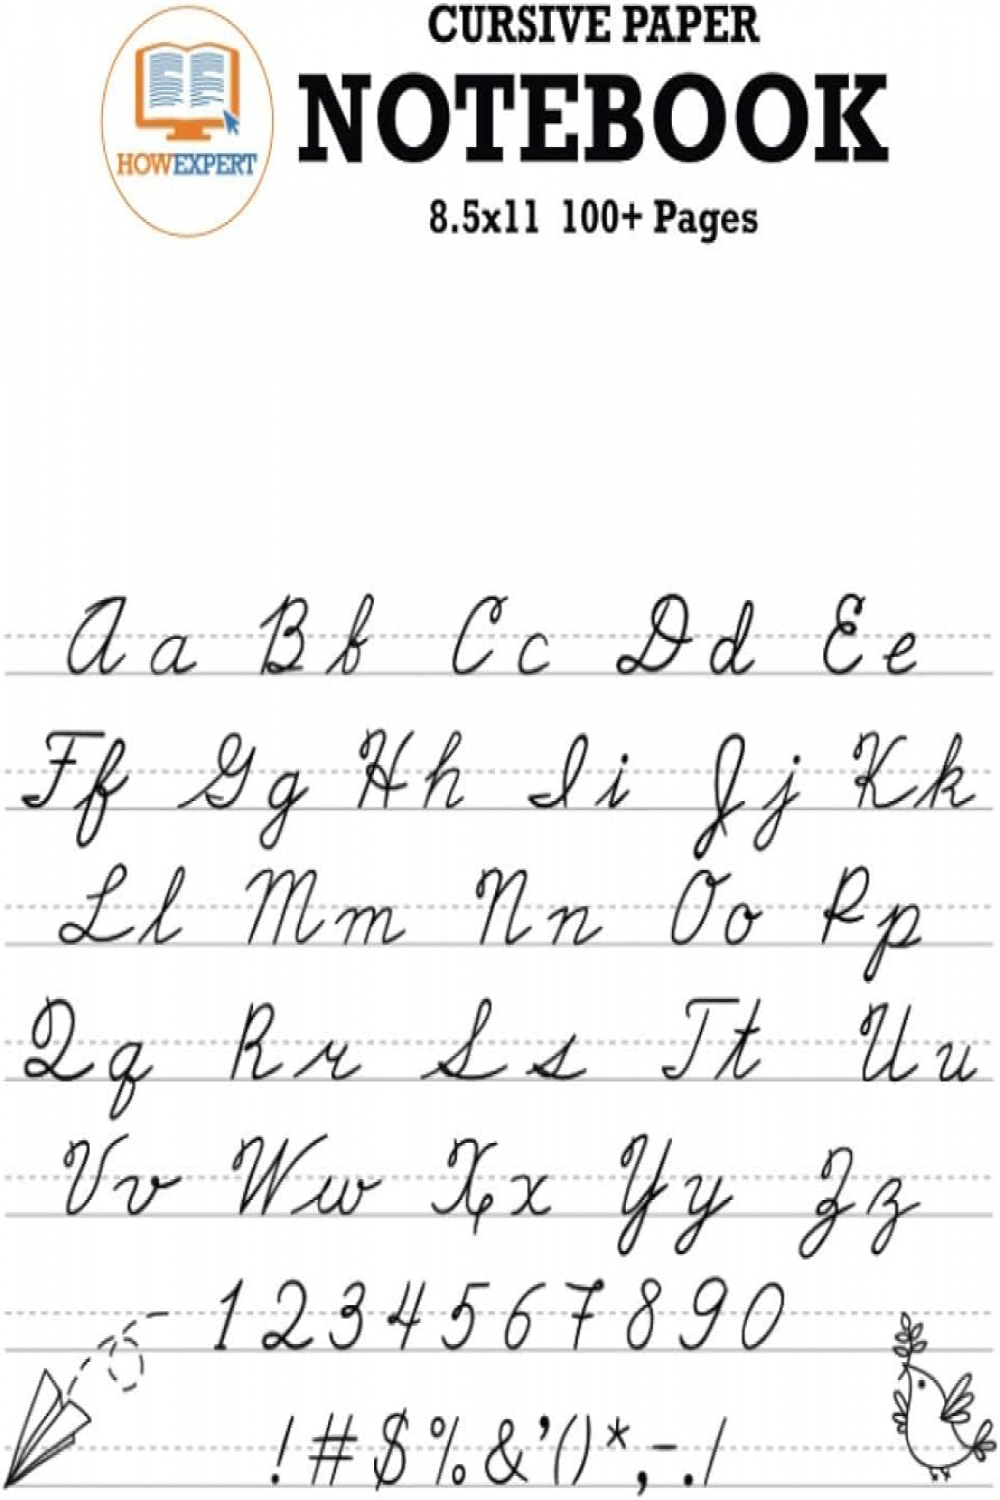 CURSIVE PAPER
NOTEBOOK
8.5x11 100+ Pages
HOWEXPERT
Aa Bb Cc Dd Ee
Ff Gg Hh Ii Jj Kk
Ll Mm Nn Oo Pp
Qq Rr Ss Tt Uu
Vv Ww Xx Yy Zz
1 2 3 4 5 6 7 8 9 0
! # $ % & ' ( ) * , - . /